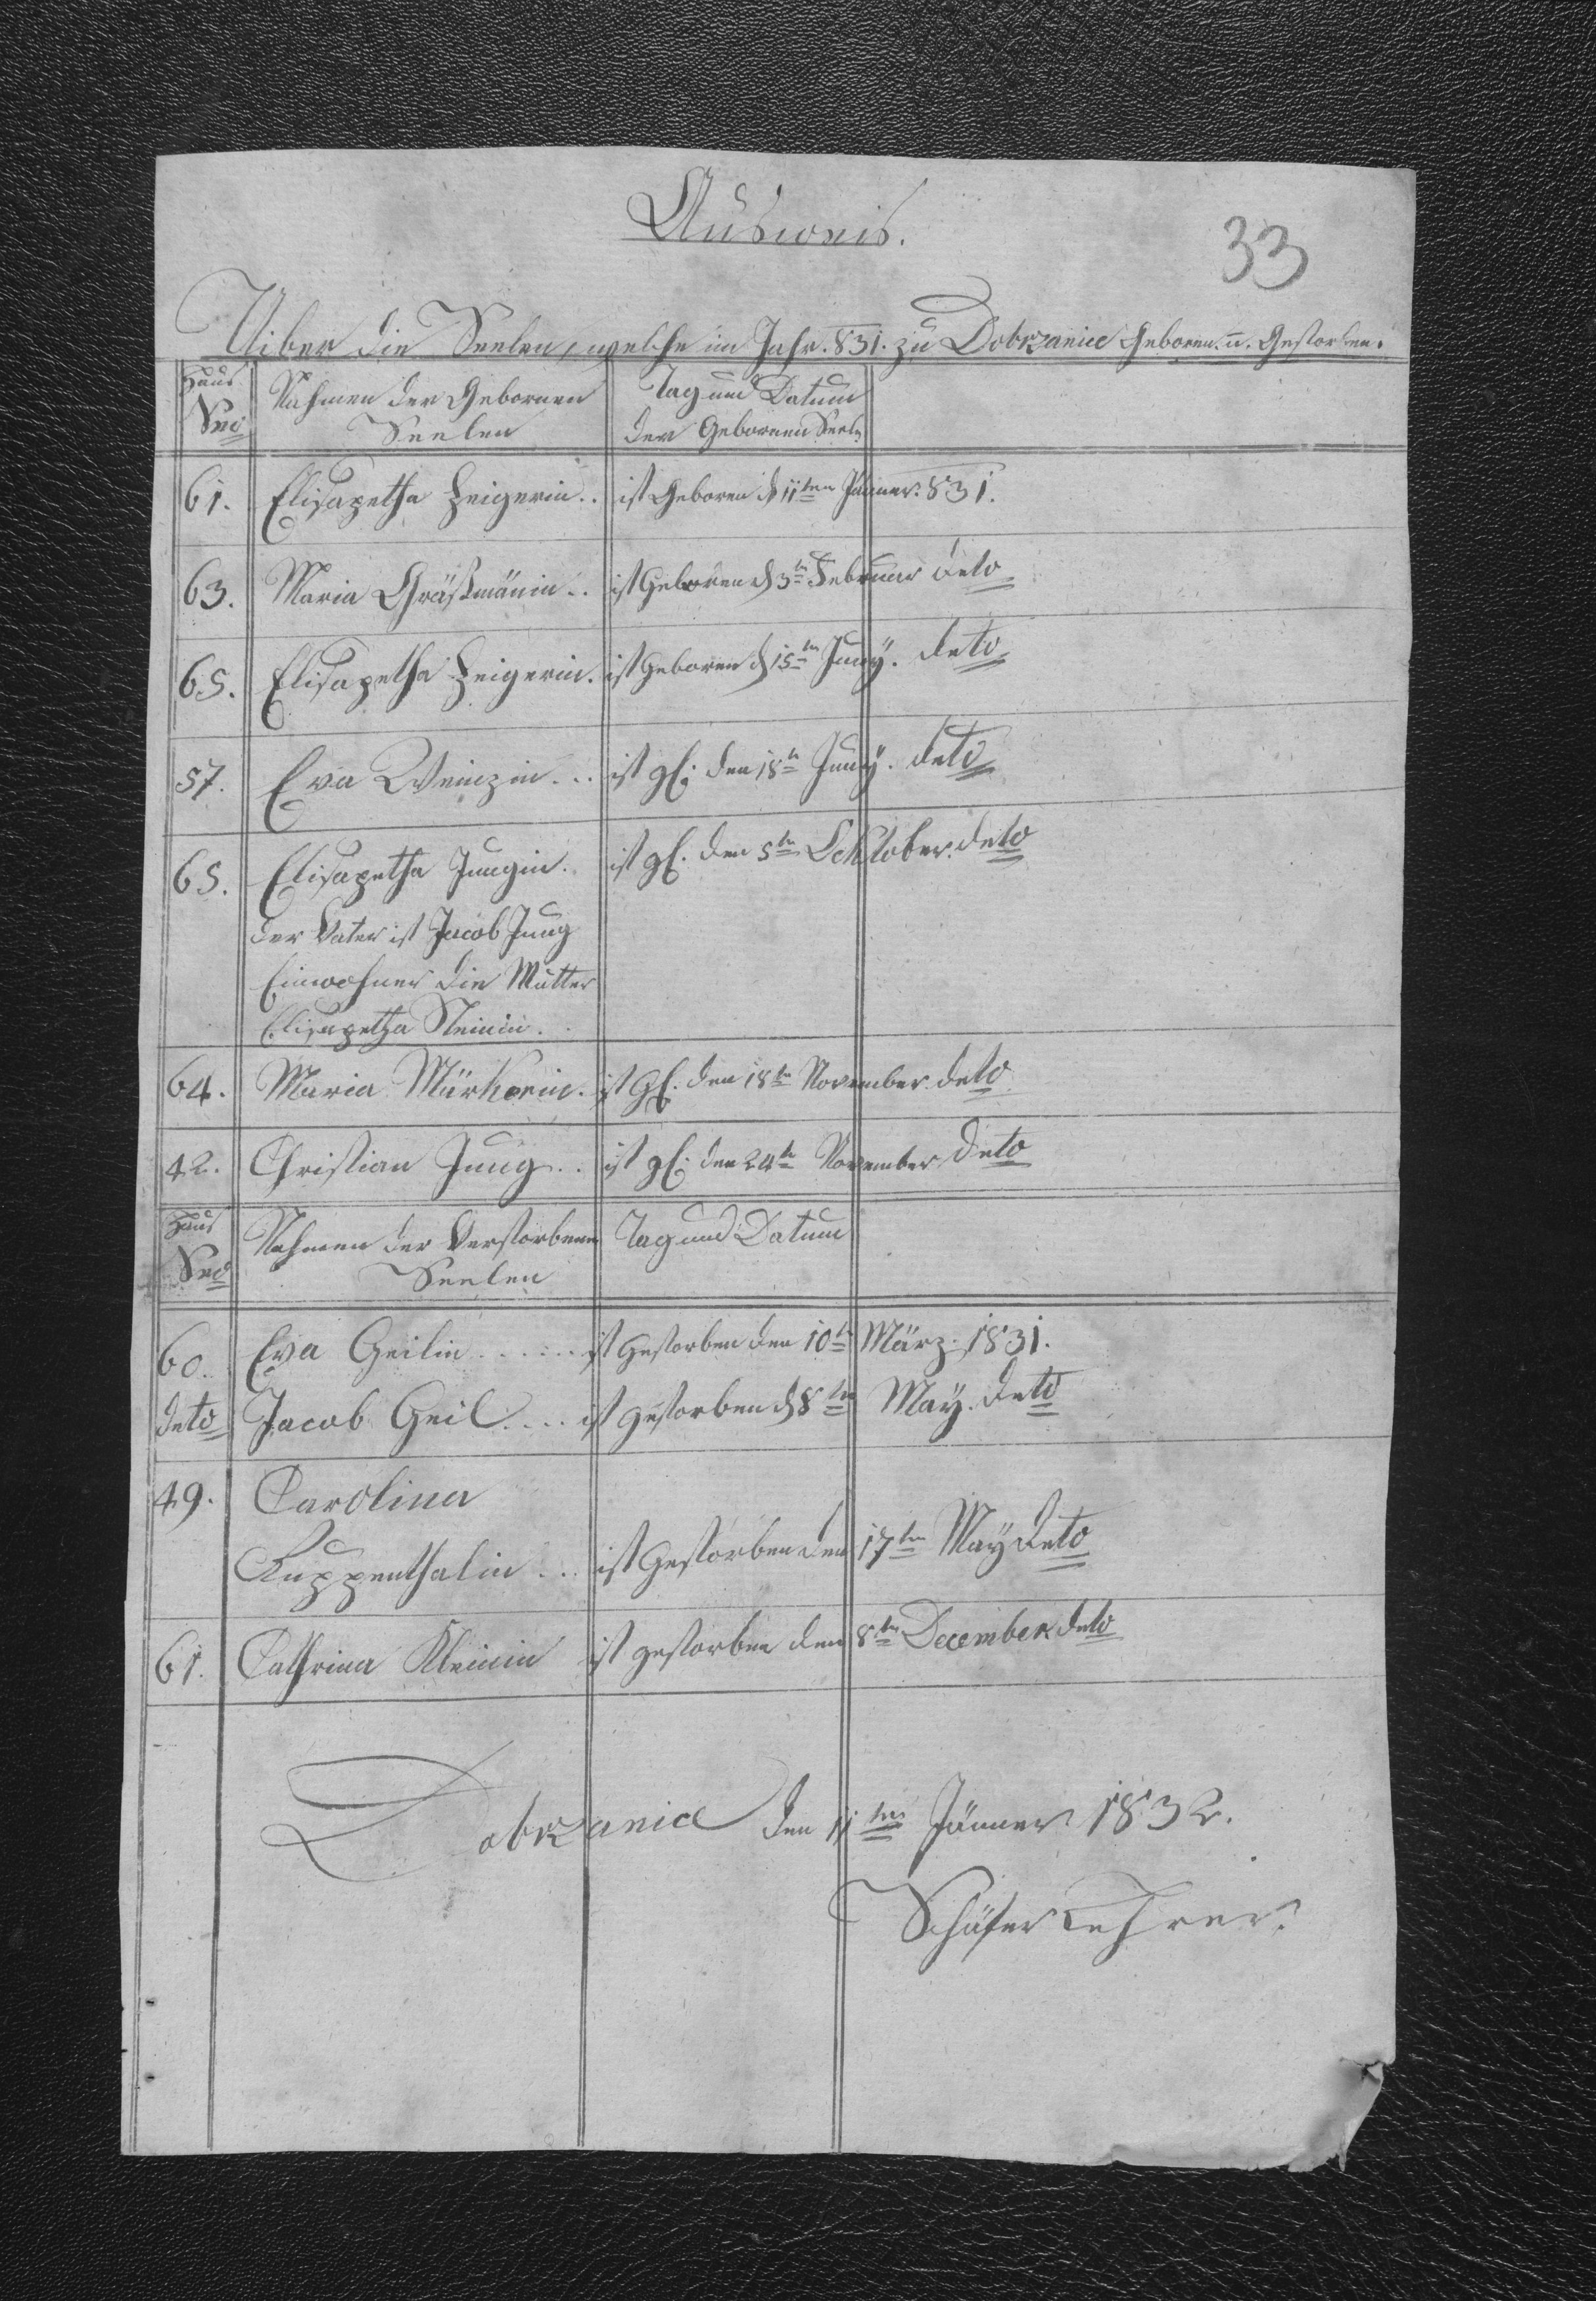 Ausweis.
33
Uiber die Seelen, welche im Jahr. 831. zu Dobrzanice Geboren. u. Gestorben.
Haus Nro
Nahmen der Gebornen Seelen
Tag und Datum der Gebornen Seeln
61. Elisapetha Heigerin.. ist Geboren d 11ten Jänner. 831.
63. Maria Gräßmänin.. ist Geboren d 3tn Februar deto
65. Elisapetha Heigerin. ist Geboren d 15tn Juny. deto
57. Eva Weinzin... ist gb: den 18tn Juny. deto
65. Elisapetha Jungin. ist gb. den 5tn Ocktober. deto
der Vater ist Jacob Jung
Einwohner die Mutter
Elisapetha Steinin..
64. Maria Märkerin. ist gb. den 18tn November. deto
42. Christian Jung.. ist gb: den 24tn November deto
Haus Nro
Nahmen der Verstorbenen Seelen
Tag und Datum
60. Eva Geilin...... ist Gestorben den 10tn März. 1831.
deto Jacob Geil.... ist Gestorben d 8tn May. deto
49. Carolina
Ruppenthalin... ist Gestorben den 17tn May deto
61. Cathrina Kleinin ist gestorben den 8tn December deto
Dobrzanice den 11ten Jänner 1832.
Schäfer Lehrer.